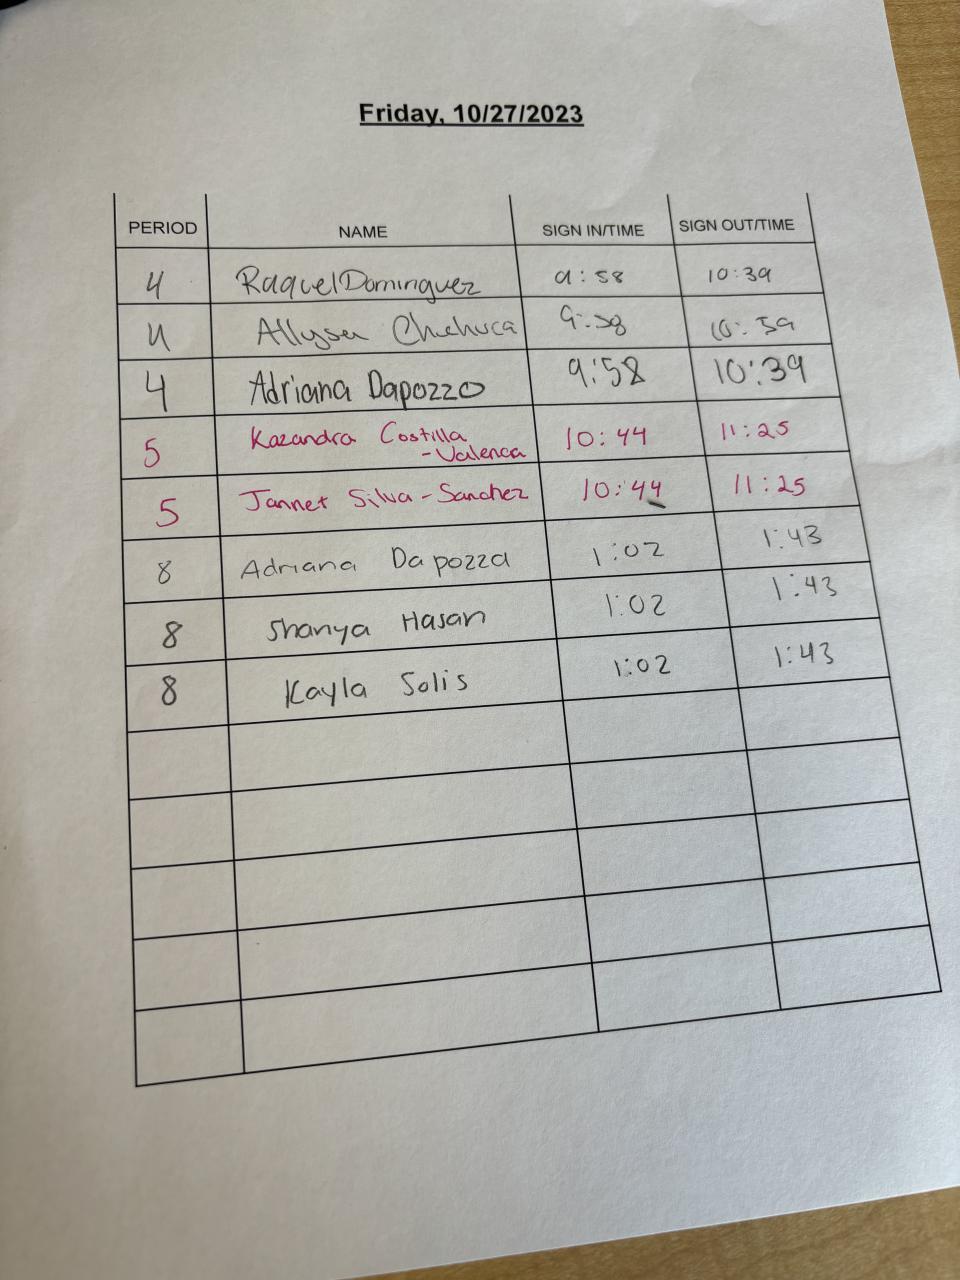 Friday, 10/27/2023
PERIOD NAME SIGN IN/TIME SIGN OUT/TIME
4 Raquel Dominguez 9:58 10:39
4 Allysa Chuhuca 9:58 10:39
4 Adriana Dapozzo 9:58 10:39
5 Kazandra Costilla 10:44 11:25
-Valenca
5 Jannet Silva-Sanchez 10:44 11:25
8 Adriana Dapozzo 1:02 1:43
8 Shanya Hasan 1:02 1:43
8 Kayla Solis 1:02 1:43